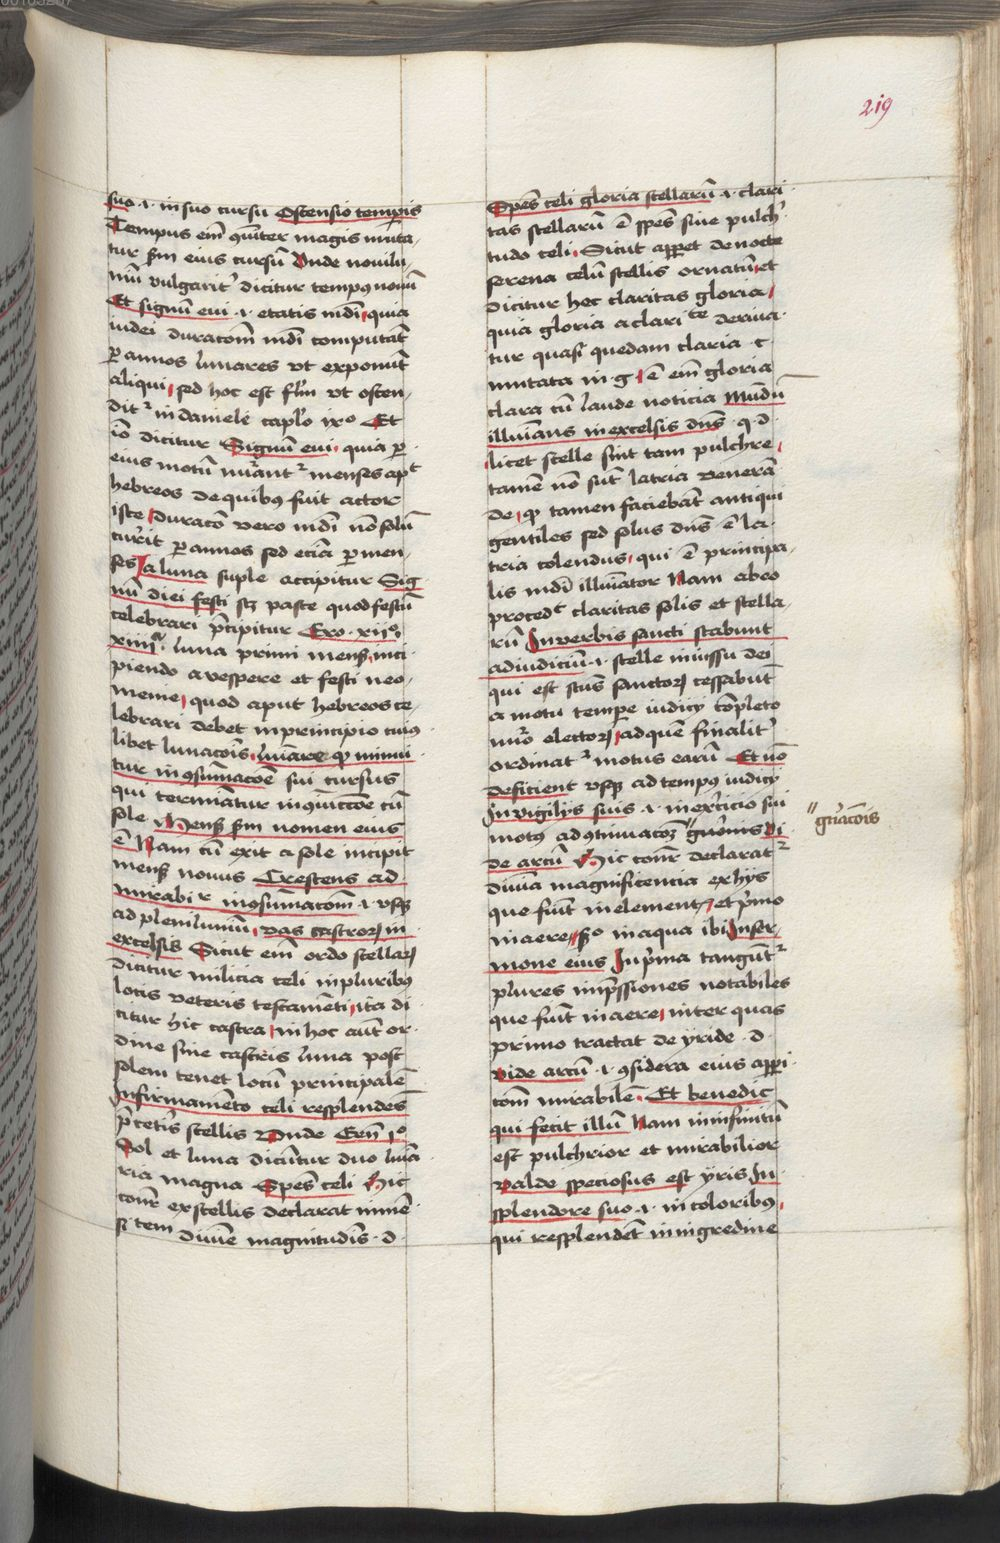 219
suo .i. in suo cursu Ostensio temporis
Tempus em̄ 9̄iter magis muta-
tur sm̄ eius cursū Vnde novilu-
niū vulgarit̄ dicitur temp9 novū
Et signū eui .i. etatis mdi quia
iudei duracōm mdi computāt
ꝑ annos lūnares vt exponūt
aliqui sed hoc est flm̄ vt osten-
dit' in daniele caplo ixo Et
iō dicitur Signū eui quia ꝑ
eius motū nūrant' menses apt
hebreos de quib9 fuit actor
iste Duracō vero mdi nō solū
currit ꝑ annos sed eciā ꝑ men-
ses A luna suple accipitur Sig
nū diei festi scꝫ pasce quod festū
celebrari p̄cipitur Exo. xiio.
xiiiia. luna primi mensꝭ inci
piendo a vespere et festi neo-
menie quod aput hebreos ce-
lebrari debet in principio cuius
libet lunacōis lūinare qd minui
tur in 9sūmacōe sui cursus
qui terminatur in 9iūccōe cū
sole Mensꝭ sm̄ nomen eius
ē Nam cū exit a sole incipit
mensꝭ novus Crescens ad
mirabir in 9sūmacōm .i. vsqꝫ
ad plenilunium vas castroꝝ in
excelsis Sicut em̄ ordo stellaꝝ
dicitur milicia celi in plurib9
locis veteris testamēti ita di
citur hic castra in hoc aūt or-
dine siue castris lūna post
solem tenet locū principalē
In firmamēto celi resplendēs
p̄ ceteris stellis Vnde Gen̄ 1o
Sol et luna dicūtur duo lūia
ria magna Spēs celi Hic
conr̄ ex stellis declarat inmē-
sitatem diuine magnitudīs .d.
Spēs celi gloria stellarū .i. clari
tas stellarū ē spēs siue pulch'
tudo celi Sicut apparet de nocte
serena celū stellis ornatū et
dicitur hec claritas gloria
quia gloria a claritate deriua-
tur quasi quedam claria . c
mutata in g . ē em̄ gloria
clara cū laude noticia Mūdū
illuīans in excelsis dn̄s . q. d.
licet stelle sint tam pulchre
tamē nō sūt latria venerā
de qd tamen faciebāt antiqui
gentiles sed solus dn̄s ē la-
tria colendus qui ē principa-
lis mdi illuīator Nam ab eo
procedt claritas solis et stella-
rū In verbis sancti stabunt
ad iudiciū .i. stelle in iussu dei
qui est scūs sanctoꝝ cessabūt
a motu tempore iudicij cōpleto
nūo electoꝝ ad quē finalit'
ordinat' motus earū Et nō
deficient vsqꝫ ad temp9 iudicij
In vigilijs suis .i. in exercicio sui
mot9 ad 9tinuacōꝫ " gn̄cionis Vi
de arcū Hic conr̄ declarat'
diuīa magnificencia ex hijs
que fiūt in elementis et primo
in aere 2o in aqua ibi In ser-
mone eius In prima tangūt'
plures impressiones notabiles
que fiūt in aere inter quas
primo tractat de yride . d.
vide arcū .i. 9sidera eius appari
cōm mirabilē. Et benedic
qui fecit illū Nam in infinitū
est pulchrior et mirabilior
Valde speciosus est yris In
splendore suo .i. in colorib9
qui resplendēt in nigredine
" gn̄acōis